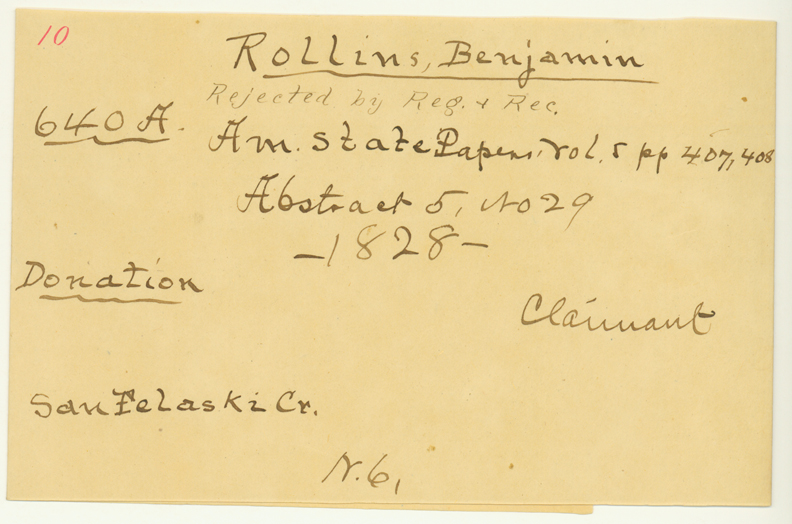 10
Rollins, Benjamin
Rejected by Reg. & Rec.
640 A.
Am. State Papers, Vol. 5 pp 407, 408
Abstract 5, No 29
-1828-
Donation
Claimant
San Felaski Cr.
N. 6,